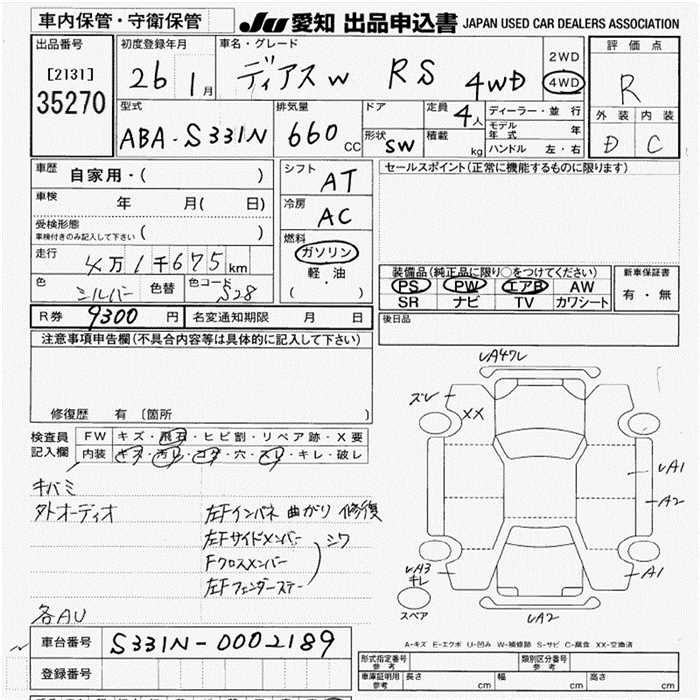 車内保管・守衛保管
JU 愛知 出品申込書 JAPAN USED CAR DEALERS ASSOCIATION
出品番号
[2131]
35270
初度登録年月
26 1月
車名・グレード
ディアスW RS 4WD
2WD
4WD
評価点
R
外装 内装
D C
型式
ABA-S331N
排気量
660 CC
ドア
形状 SW
定員 4人
積載 kg
ディーラー・並行
モデル年式 年
ハンドル 左・右
車歴 自家用・( )
車検 年 月( 日)
受検形態
車検付きのみ記入して下さい ( )
走行 4万1千675km
色 シルバー 色替 色コード S28
シフト AT
冷房 AC
燃料
ガソリン
軽・油
( )
セールスポイント(正常に機能するものに限ります)
装備品(純正品に限り○をつけてください)
PS PW エアB AW
SR ナビ TV カワシート
新車保証書
有・無
R券 9300 円 名変通知期限 月 日
後日品
注意事項申告欄(不具合内容等は具体的に記入して下さい)
修復歴 有 [箇所 ]
検査員記入欄
FW キズ・飛石・ヒビ割・リペア跡・X要
内装 キズ・汚レ・コゲ・穴・スレ・キレ・破レ
キバミ
外オーディオ
左Fインパネ 曲がり 修復
左Fサイドメンバー
Fクロスメンバー
左Fフェンダーステー
シワ
各AU
UA47L
ズレ
XX
UA1
A2
A1
UA3
キレ
スペア
UA2
A-キズ E-エクボ U-凹み W-補修跡 S-サビ C-腐食 XX-交換済
車台番号 S331N-0002189
登録番号
形式指定番号 参考
類別区分番号 参考
車庫証明用 参考 長さ cm 幅 cm 高さ cm